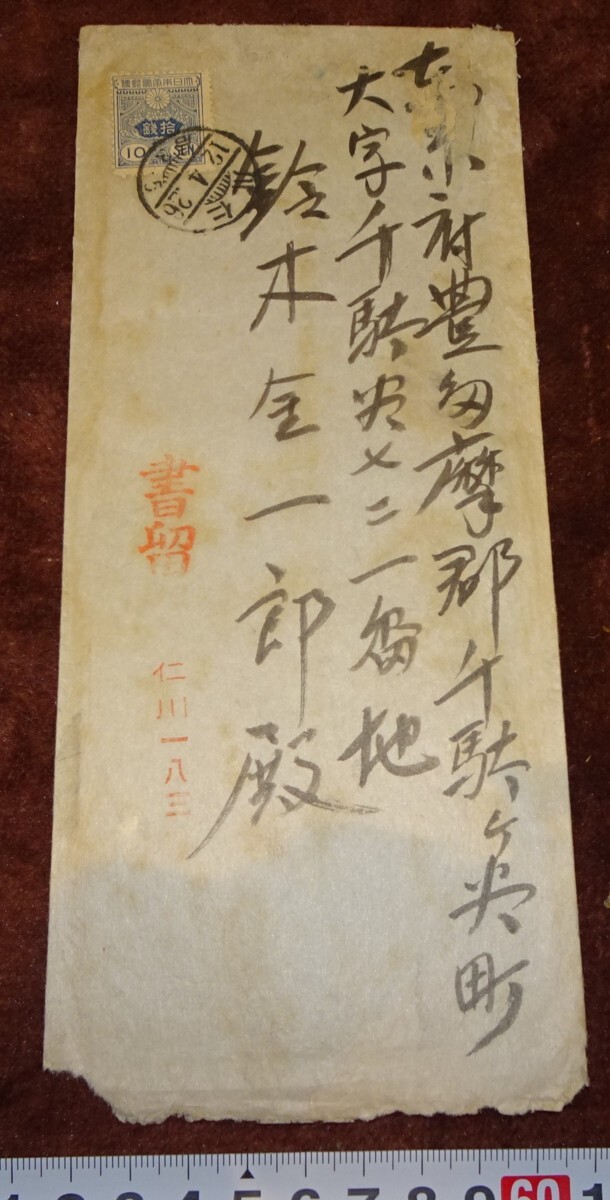 東京府豊多摩郡千駄ヶ谷町
大字千駄谷七二一番地
鈴木金一郎殿
大日本帝國郵便
拾銭
10
12.4.26
書留
仁川一八三
1 2 3 4 5 6 7 8 9 60 1